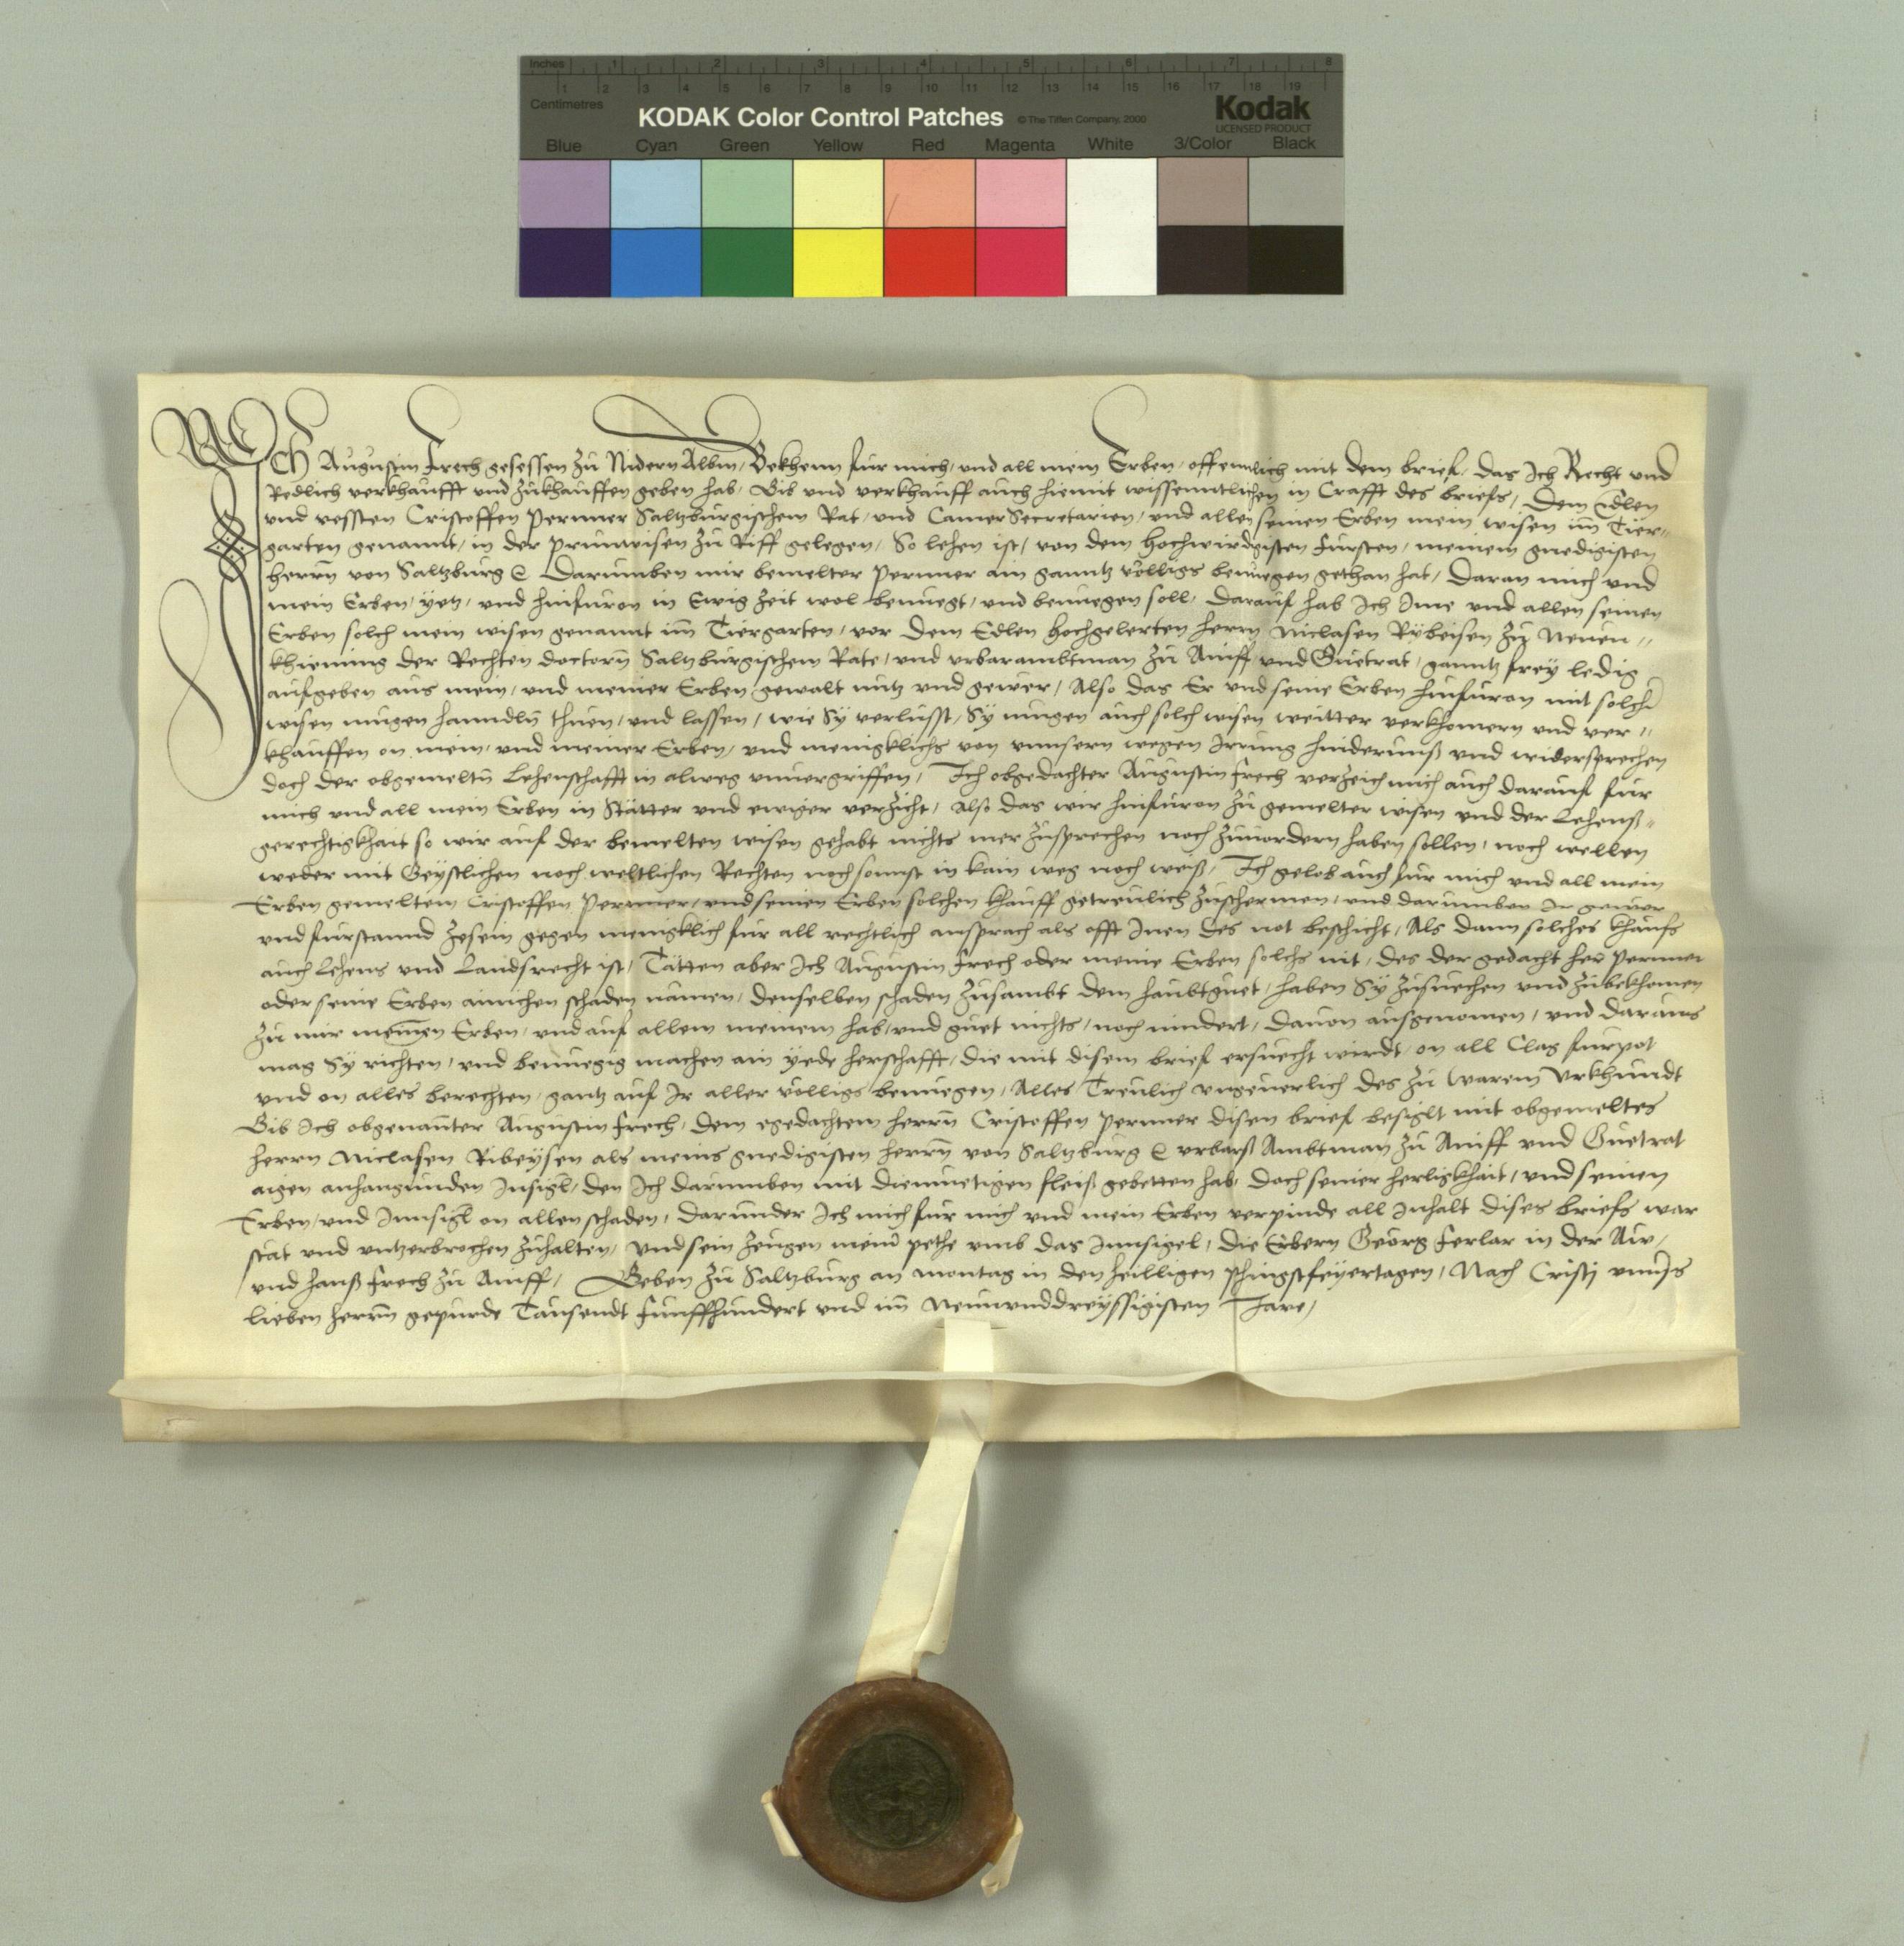 Inches 1 2 3 4 5 6 7 8
1 2 3 4 5 6 7 8 9 10 11 12 13 14 15 16 17 18 19
Centimetres
KODAK Color Control Patches © The Tiffen Company, 2000 Kodak
LICENSED PRODUCT
Blue Cyan Green Yellow Red Magenta White 3/Color Black
ICh Augustin Frech gesessen zu Nidern Albm, Bekhenn fur mich, und all mein Erben, offennlich mit dem brief, das Ich Recht und
Redlich verkhaufft und zukhauffen geben hab, Gib und verkhauff auch hiemit wissenntlichen in Crafft des briefs, Dem Edlen
und vessten Cristoffen Perner Saltzburgischem Rat, und Camer Secretarien, und allen seinen Erben mein wisen im Tier„
garten genannt, in der prunwisen zu Riff gelegen, So lehen ist, von dem hochwirdigisten fursten, meinem gnedigisten
herrn von Saltzburg &c Darumben mir bemelter Perner ain ganntz völligs benuegen gethan hat, Daran mich und
mein Erben, yetz, und hinfuron in Ewig zeit wol benuegt, und benuegen soll, Darauf hab Ich Ime und allen seinen
Erben solch mein wisen genannt im Tiergarten, vor dem Edlen hochgelerten herrn Niclasen Rybeisen zu Neuen„
khieming der Rechten doctorn Saltzburgischem Rate, und urbarambtman zu Aniff und Guetrat, ganntz frey ledig
aufgeben aus mein, und meiner Erben gewalt nutz und gewer, Also das Er und seine Erben hinfuron mit solcher
wisen mugen hanndln thuen, und lassen, wie Sy verlusst, Sy mugen auch solch wisen weitter verkhomern und ver„
khauffen on mein, und meiner Erben, und menigklichs von unnsern wegen Irrung hindernuß und widersprechen
doch der obgemeltn Lehenschafft in alweg unvergriffen, Ich obgedachter Augustin frech verzeich mich auch darauf fur
mich und all mein Erben in Stätter und ewiger verzicht, Also das wir hinfuron zu gemelter wisen und der Lehenß„
gerechtigkhait so wir auf der bemelten wisen gehabt nichts mer zusprechen noch zuvordern haben sollen, noch wellen
weder mit Geystlichen noch weltlichen Rechten noch sonnst in kain weg noch weiß, Ich gelob auch fur mich und all mein
Erben gemeltem Cristoffen Perner, und seinen Erben solchen khauff getreulich zuschermen, und darumben Ir gewer
und furstannd zesein gegen menigklich fur all rechtlich ansprach als offt Inen des not beschicht, Als dann solches khaufs
auch Lehens und Landsrecht ist, Tätten aber Ich Augustin frech oder meine Erben solchs nit, des der gedacht her Perner
oder seine Erben ainichen schaden namen, denselben schaden zusambt dem haubtguet, haben Sy zusuechen und zubekhomen
zu mir meinen Erben, und auf allem meinem hab, und guet nichts, noch nindert, davon ausgenomen, und daraus
mag Sy richten, und benuegig machen ain yede herschafft, die mit disem brief ersuecht wirdt, on all Clag furpot
und on alles berechten, gantz auf Ir aller völligs benuegen, Alles Treulich ungeuerlich des zu Warem Urkhundt
Gib Ich obgenannter Augustin frech, dem egedachtem herrn Cristoffen Perner disen brief besiglt mit obgemeltes
herrn Niclasen Ribeysen als meins gnedigisten herrn von Saltzburg &c urbarß Ambtman zu Aniff und Guetrat
aigen anhangunden Insigl, den Ich darumben mit diemuetigen fleiß gebetten hab, doch seiner herligkhait, und seinen
Erben, und Innsigl on allen schaden, darunder Ich mich fur mich und mein Erben verpinde all Inhalt dises briefs war
stät und untzerbrochen zuhalten, und sein zeugen meiner pethe umb das Innsigel, die Erbern Georg Ferlar in der Aw,
und hanß frech zu Aniff, Geben zu Saltzburg an montag in den heilligen phingstfeyertagen, Nach Cristi unnsers
lieben herrn gepurde Tausendt funffhundert und im Neununddreyssigisten Jare,